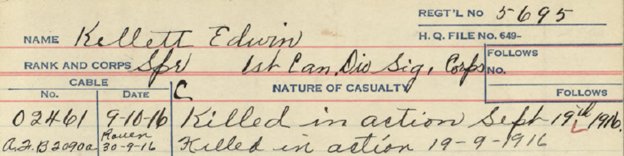 REGT'L NO 5695
NAME Kellett Edwin H. Q. FILE NO. 649-
RANK AND CORPS Spr 1st Can. Div Sig. Corps FOLLOWS NO.
CABLE C NATURE OF CASUALTY FOLLOWS
NO. DATE
02461 9-10-16 Killed in action Sept 19th 1916.
Rouen
A.F.B2090a 30-9-16 Killed in action 19-9-1916